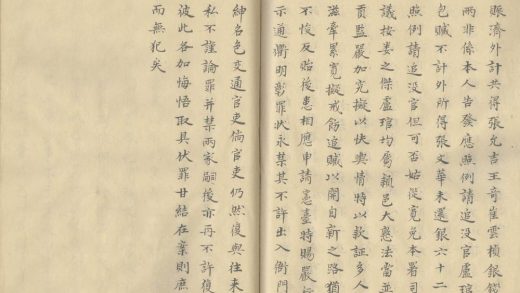 賑濟外計共得張允吉王奇崔雲楨銀
兩非係本人告發應照例請追沒官盧琯
包贓不計外所得張文華未還銀六十二
照例請追沒官但可否姑從寬免本署司
議按婁之傑盧琯均屬頴邑大憝法當並
貢監嚴加究擬以快輿情特以款証多人
滋牽累寬擬戒飭追贓以開自新之路猶
不悛反貽後患相應申請憲臺特賜嚴
示通衢明彰罪狀永禁其不許出入衙門
紳名色交通官吏倘官吏仍然復與往來
私不謹論罪并禁兩家嗣後亦再不許復
彼此各加悔悟取具伏罪甘結在案則庶
而無犯矣